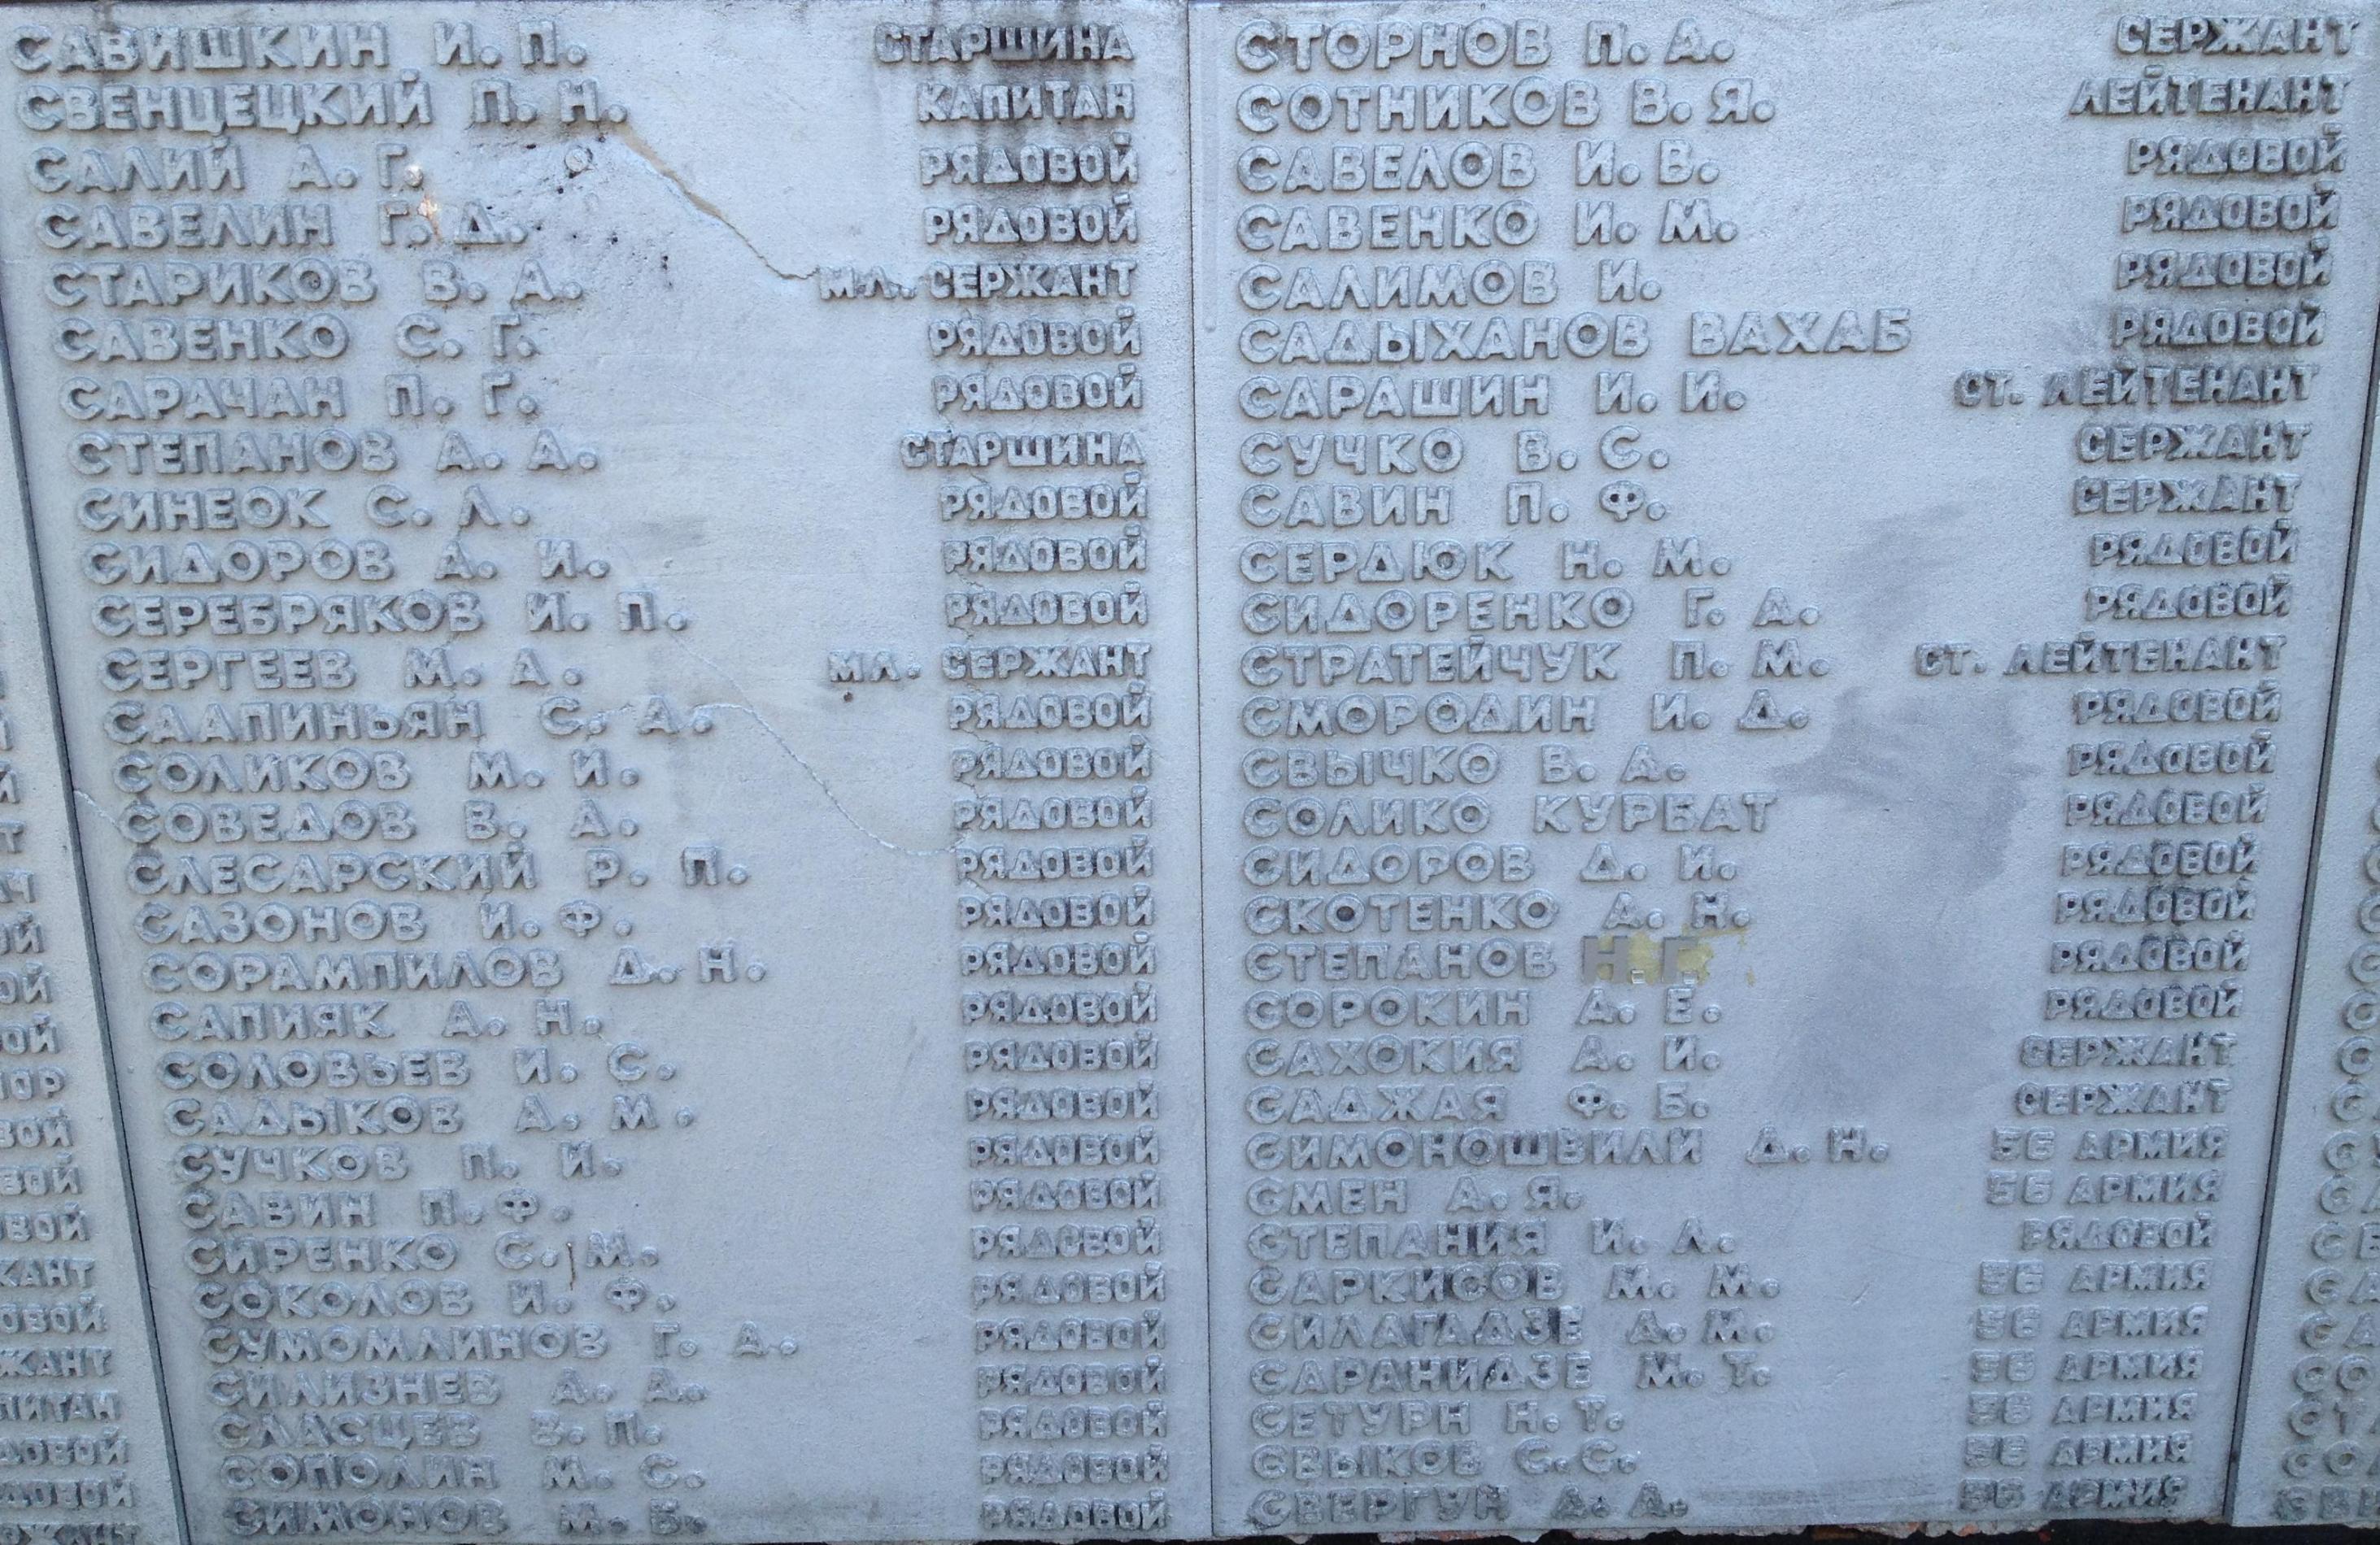 САВИШКИН И. П. СТАРШИНА
СВЕНЦЕЦКИЙ П. Н. КАПИТАН
САЛИЙ А. Г. РЯДОВОЙ
САВЕЛИН Г. Д. РЯДОВОЙ
СТАРИКОВ В. А. МЛ. СЕРЖАНТ
САВЕНКО С. Г. РЯДОВОЙ
САРАЧАН П. Г. РЯДОВОЙ
СТЕПАНОВ А. А. СТАРШИНА
СИНЕОК С. Л. РЯДОВОЙ
СИДОРОВ А. И. РЯДОВОЙ
СЕРЕБРЯКОВ И. П. РЯДОВОЙ
СЕРГЕЕВ М. А. МЛ. СЕРЖАНТ
СААПИНЬЯН С. А. РЯДОВОЙ
СОЛИКОВ М. И. РЯДОВОЙ
СОВЕДОВ В. А. РЯДОВОЙ
СЛЕСАРСКИЙ Р. П. РЯДОВОЙ
САЗОНОВ И. Ф. РЯДОВОЙ
СОРАМПИЛОВ Д. Н. РЯДОВОЙ
САПИЯК А. Н. РЯДОВОЙ
СОЛОВЬЕВ И. С. РЯДОВОЙ
САДЫКОВ А. М. РЯДОВОЙ
СУЧКОВ П. И. РЯДОВОЙ
САВИН П. Ф. РЯДОВОЙ
СИРЕНКО С. М. РЯДОВОЙ
СОКОЛОВ И. Ф. РЯДОВОЙ
СУМОМЛИНОВ Г. А. РЯДОВОЙ
СИЛИЗНЕВ А. А. РЯДОВОЙ
СЛАСЦЕВ В. П. РЯДОВОЙ
СОПОЛИН М. С. РЯДОВОЙ
СИМОНОВ М. Б. РЯДОВОЙ
СТОРНОВ П. А. СЕРЖАНТ
СОТНИКОВ В. Я. ЛЕЙТЕНАНТ
САВЕЛОВ И. В. РЯДОВОЙ
САВЕНКО И. М. РЯДОВОЙ
САЛИМОВ И. РЯДОВОЙ
САДЫХАНОВ ВАХАБ РЯДОВОЙ
САРАШИН И. И. СТ. ЛЕЙТЕНАНТ
СУЧКО В. С. СЕРЖАНТ
САВИН П. Ф. СЕРЖАНТ
СЕРДЮК Н. М. РЯДОВОЙ
СИДОРЕНКО Г. А. РЯДОВОЙ
СТРАТЕЙЧУК П. М. СТ. ЛЕЙТЕНАНТ
СМОРОДИН И. Д. РЯДОВОЙ
СВЫЧКО В. А. РЯДОВОЙ
СОЛИКО КУРБАТ РЯДОВОЙ
СИДОРОВ Д. И. РЯДОВОЙ
СКОТЕНКО А. Н. РЯДОВОЙ
СТЕПАНОВ Н. Г. РЯДОВОЙ
СОРОКИН А. Е. РЯДОВОЙ
САХОКИЯ А. И. СЕРЖАНТ
САДЖАЯ Ф. Б. СЕРЖАНТ
СИМОНОШВИЛИ Д. Н. 56 АРМИЯ
СМЕН А. Я. 56 АРМИЯ
СТЕПАНИЯ И. Л. РЯДОВОЙ
САРКИСОВ М. М. 56 АРМИЯ
СИЛАГАДЗЕ Д. М. 56 АРМИЯ
САРАНИДЗЕ М. Т. 56 АРМИЯ
СЕТУРН Н. Т. 56 АРМИЯ
СВЫКОВ С. С. 56 АРМИЯ
СВЕРГУН Д. Д. 56 АРМИЯ